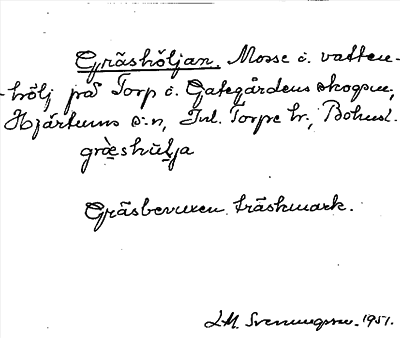 Gräshöljan. Mosse o. vatten-
-hölj på Torp o. Gategårdens skogsm.,
Hjärtums s:n, Inl. Torpe hd., Bohusl.
græshúlja
Gräsbevuxen träskmark.
J.M. Svenungsson. 1951.